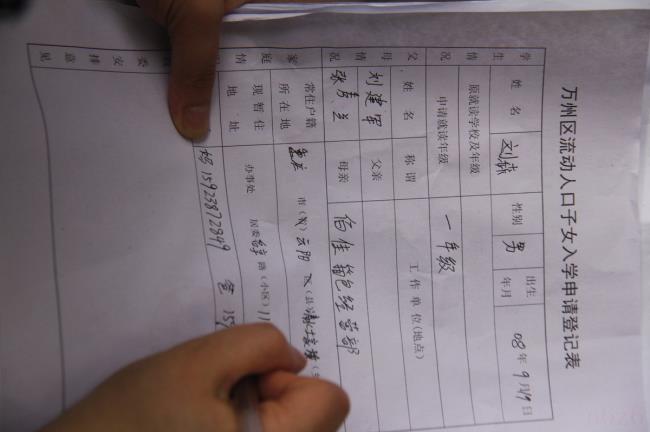 万州区流动人口子女入学申请登记表
学生情况 姓名 刘森 性别 男 出生年月 08年9月19日
原就读学校及年级
申请就读年级 一年级
父母情况 姓名 称谓 工作单位(地点)
刘建军 父亲
张 兰 母亲 佰佳箱包经营部
家庭情 常住户籍所在地 重庆 市(州) 云阳 区(县)
现暂住地址 办事处 居委 路(小区) 11
杨 15923872849 爸 159
委安排意见